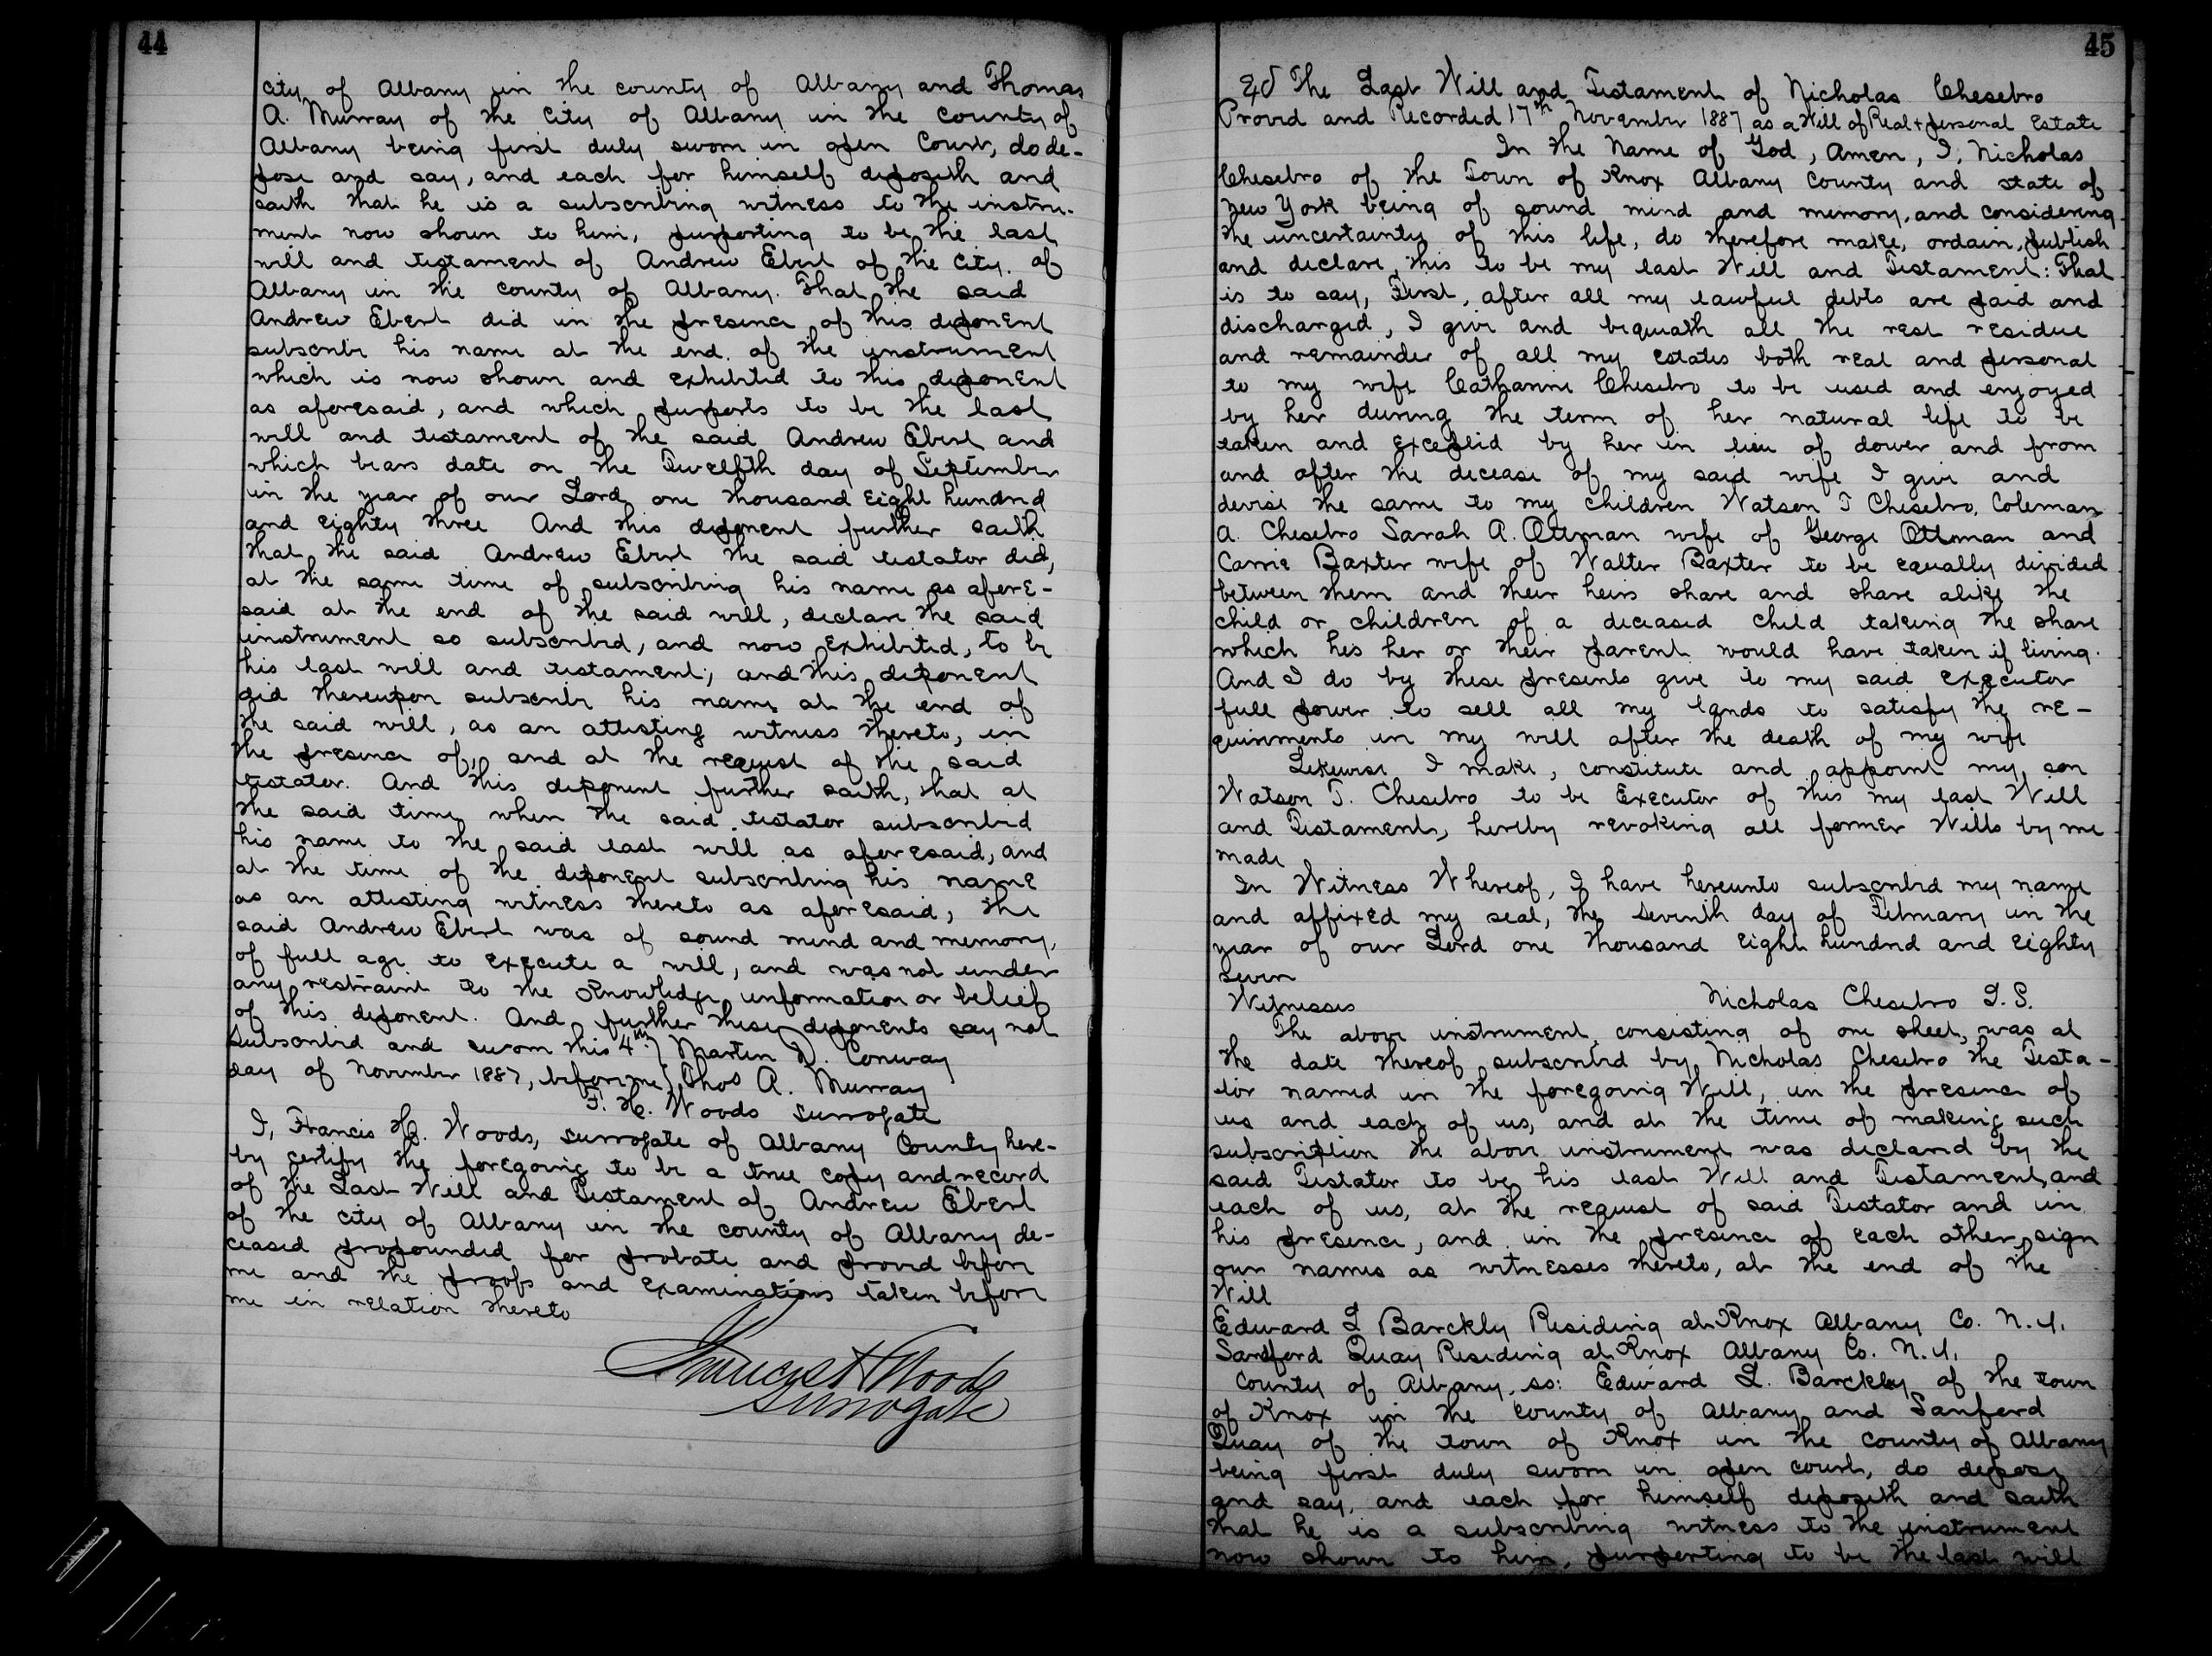 44
City of Albany in the county of Albany and Thomas
A. Murray of the City of Albany in the County of
Albany being first duly sworn in open Court, do de-
pose and say, and each for himself deposeth and
saith that he is a subscribing witness to the instru-
ment now shown to him, purporting to be the last
will and testament of Andrew Ebert of the City of
Albany in the county of Albany. That the said
Andrew Ebert did in the presence of this deponent
subscribe his name at the end of the instrument
which is now shown and exhibited to this deponent
as aforesaid, and which purports to be the last
will and testament of the said Andrew Ebert and
which bears date on the Twelfth day of September
in the year of our Lord one thousand Eight hundred
and eighty three And this deponent further saith
that the said Andrew Ebert the said testator did,
at the same time of subscribing his name as afore-
said at the end of the said will, declare the said
instrument so subscribed, and now exhibited, to be
his last will and testament; and this deponent
did thereupon subscribe his name at the end of
the said will, as an attesting witness thereto, in
the presence of, and at the request of the said
testator. And this deponent further saith, that at
the said time when the said testator subscribed
his name to the said last will as aforesaid, and
at the time of the deponent subscribing his name
as an attesting witness thereto as aforesaid, the
said Andrew Ebert was of sound mind and memory,
of full age to execute a will, and was not under
any restraint to the knowledge, information or belief
of this deponent. And further these deponents say not
Subscribed and sworn this 4th } Martin D. Conway
day of November 1887, before me } Thos A. Murray
F. H. Woods Surrogate
I, Francis H. Woods, Surrogate of Albany County here-
by certify the foregoing to be a true copy and record
of the Last Will and Testament of Andrew Ebert
of the City of Albany in the county of Albany de-
ceased propounded for probate and proved before
me and the proofs and examinations taken before
me in relation thereto
Francis H Woods
Surrogate
45
The Last Will and Testament of Nicholas Chesebro
Proved and Recorded 17th November 1887 as a Will of Real + personal Estate
In the Name of God, Amen, I, Nicholas
Chesebro of the Town of Knox Albany County and state of
New York being of sound mind and memory, and considering
the uncertainty of this life, do therefore make, ordain, publish
and declare, this to be my last Will and Testament: That
is to say, First, after all my lawful debts are paid and
discharged, I give and bequeath all the rest residue
and remainder of all my estates both real and personal
to my wife Catharine Chesebro to be used and enjoyed
by her during the term of her natural life to be
taken and excepted by her in lieu of dower and from
and after the decease of my said wife I give and
devise the same to my children Watson T Chesebro, Coleman
A. Chesebro Sarah A. Ottman wife of George Ottoman and
Carrie Baxter wife of Walter Baxter to be equally divided
between them and their heirs share and share alike the
child or children of a deceased child taking the share
which his her or their parent would have taken if living.
And I do by these presents give to my said executor
full power to sell all my lands to satisfy the re-
quirments in my will after the death of my wife
Likewise I make, constitute and appoint my son
Watson T. Chesebro to be Executor of this my last Will
and Testament, hereby revoking all former Wills by me
made
In Witness Whereof, I have hereunto subscribed my name
and affixed my seal, the seventh day of February in the
year of our Lord one thousand eight hundred and eighty
seven
Witnesses Nicholas Chesebro L.S.
The above instrument, consisting of one sheet, was at
the date thereof subscribed by Nicholas Chesebro the Testa-
tor named in the foregoing Will, in the presence of
us and each of us, and at the time of making such
subscription the above instrument was declared by the
said Testator to be his last Will and Testament, and
each of us, at the request of said Testator and in
his presence, and in the presence of each other, sign
our names as witnesses thereto, at the end of the
Will
Edward L Barckly Residing at Knox Albany Co. N.Y.
Sandford Quay Residing at Knox Albany Co. N.Y.
County of Albany, ss: Edward L. Barckley of the town
of Knox in the County of Albany and Sanford
Quay of the town of Knox in the County of Albany
being first duly sworn in open court, do depose
and say, and each for himself deposeth and saith
that he is a subscribing witness to the instrument
now shown to him, purporting to be the last will